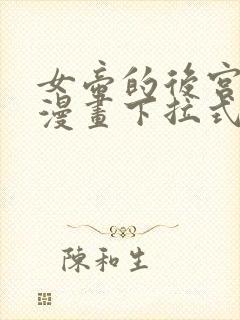 女帝的後宮
漫畫下拉式
陳和生